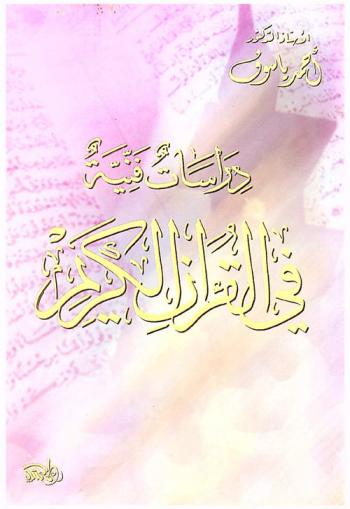 الأستاذ الدكتور
أحمد ياسوف
دِرَاسَاتٌ فَنِّيَّةٌ
فِي القُرْآنِ الكَرِيْمِ